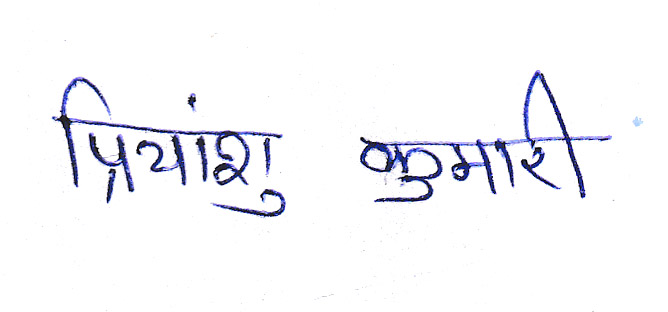 प्रियांशु कुमारी